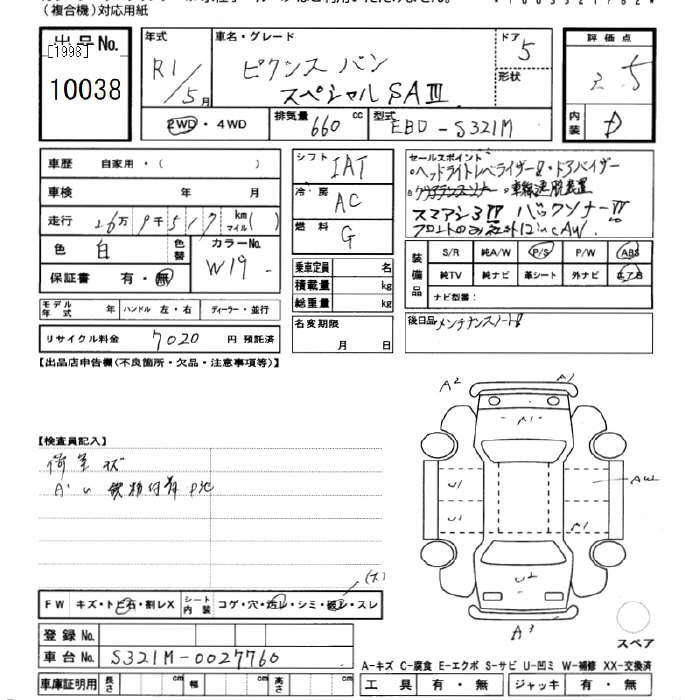 (複合機)対応用紙
出品No.
[1998]
10038
年式 R1/5月
車名・グレード ピクシス バン
スペシャルSAⅢ
ドア 5
形状
2WD・4WD
排気量 660 cc
型式 EBD-S321M
評価点 3.5
内装 D
車歴 自家用・( )
車検 年 月
走行 26万9千517 km マイル( )
色 白 色替 カラーNo. W19
保証書 有・無
モデル年式 年 ハンドル 左・右 ディーラー・並行
リサイクル料金 7020 円 預託済
シフト IAT
冷・房 AC
燃料 G
乗車定員 名
積載量 kg
総重量 kg
名変期限
月 日
セールスポイント
ヘッドライトレベライザー
ドアバイザー
車線逸脱装置
スマアシ3 バックソナー
装備品 S/R 純A/W P/S P/W ABS
純TV 純ナビ 革シート 外ナビ
ナビ型番:
後日品 メンテナンスノート
【出品店申告欄(不良箇所・欠品・注意事項等)】
【検査員記入】
荷室
A2 A1
A1
U1 AW2
U1 A1
U2
A3
スペア
FW キズ・トビ石・割レX シート内装 コゲ・穴・汚レ・シミ・破レ・スレ
(大)
登録No.
車台No. S321M-0027760
車庫証明用 長さ cm 幅 cm 高さ cm
A-キズ C-腐食 E-エクボ S-サビ U-凹ミ W-補修 XX-交換済
工具 有・無 ジャッキ 有・無